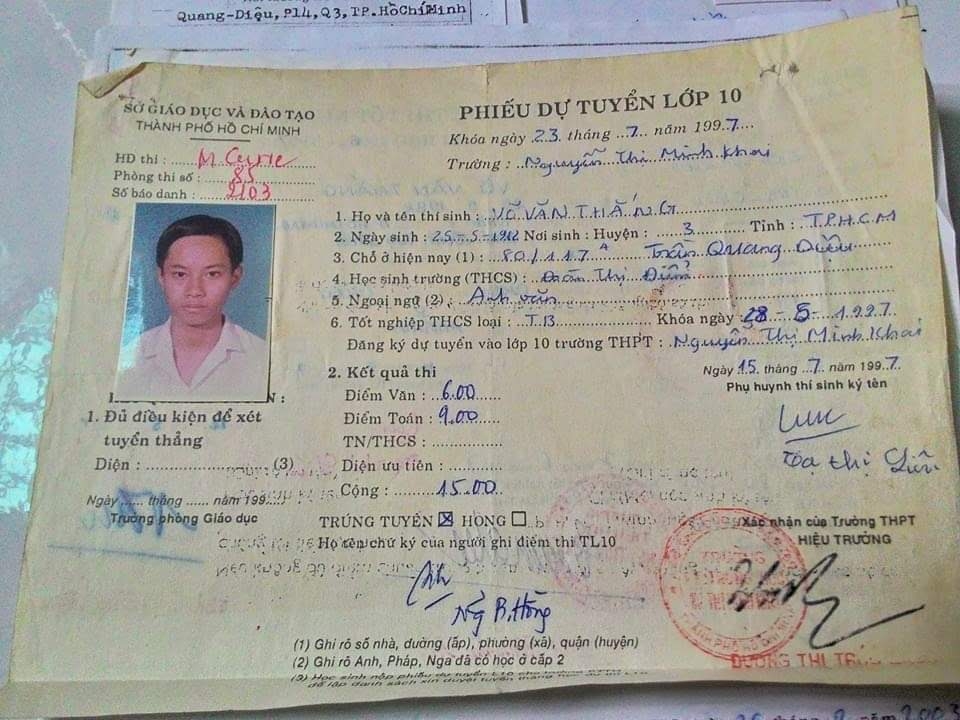 Quang-Diệu, P14, Q3, TP.HồChíMinh
SỞ GIÁO DỤC VÀ ĐÀO TẠO
THÀNH PHỐ HỒ CHÍ MINH
HĐ thi : M. Curie
Phòng thi số : 85
Số báo danh : 2103
PHIẾU DỰ TUYỂN LỚP 10
Khóa ngày 23 tháng 7 năm 1997
Trường : Nguyễn Thị Minh Khai
1. Họ và tên thí sinh : VÕ VĂN THẮNG
2. Ngày sinh : 25-5-1982 Nơi sinh : Huyện : 3 Tỉnh : T.P.H.C.M
3. Chỗ ở hiện nay (1) : 80/117A Trần Quang Diệu
4. Học sinh trường (THCS) : Đoàn Thị Điểm
5. Ngoại ngữ (2) : Anh văn
6. Tốt nghiệp THCS loại : T.B Khóa ngày 28-5-1997
Đăng ký dự tuyển vào lớp 10 trường THPT : Nguyễn Thị Minh Khai
Ngày 15 tháng 7 năm 1997
Phụ huynh thí sinh ký tên
Tạ Thị
2. Kết quả thi
Điểm Văn : 6.00
Điểm Toán : 9.00
TN/THCS :
Diện ưu tiên :
Cộng : 15.00
TRÚNG TUYỂN ☒ HỎNG ☐
Họ tên chữ ký của người ghi điểm thi TL10
Ng B. Hồng
1. Đủ điều kiện để xét
tuyển thẳng
Diện : (3)
Ngày ...... tháng ...... năm 199
Trưởng phòng Giáo dục
Xác nhận của Trường THPT
HIỆU TRƯỞNG
DƯƠNG THỊ
(1) Ghi rõ số nhà, đường (ấp), phường (xã), quận (huyện)
(2) Ghi rõ Anh, Pháp, Nga đã có học ở cấp 2